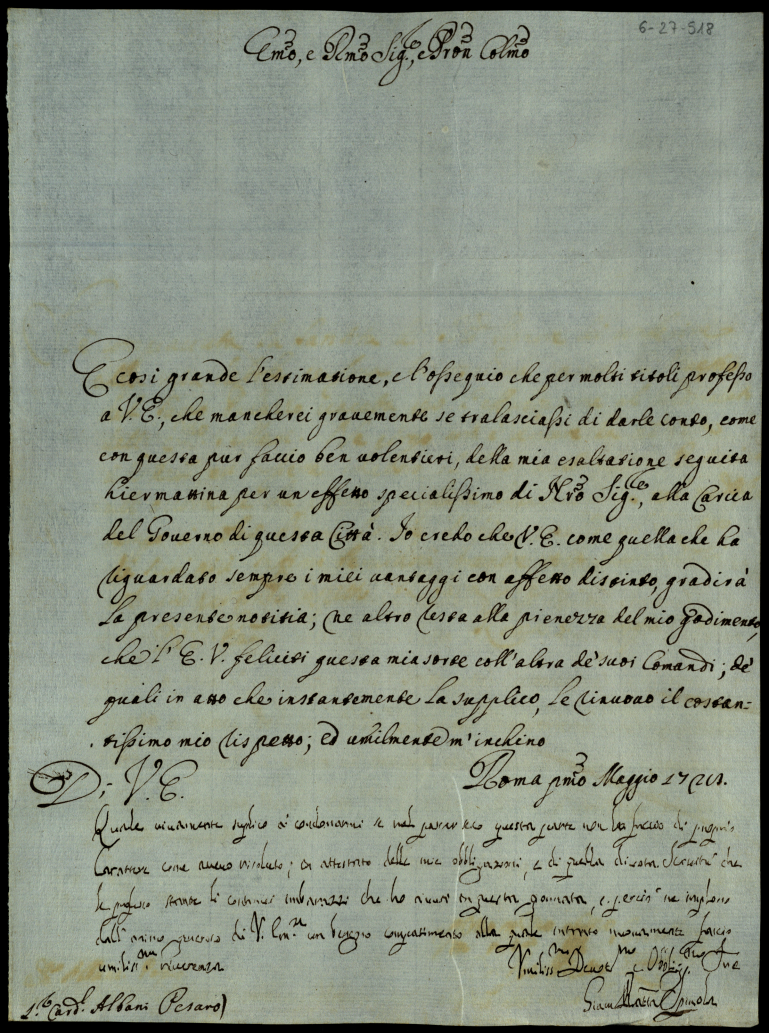 6-27-518
Emo, e Rmo Sig.re, e Pron Colmo
E cosi grande l'estimatione, e l'ossequio che per molti titoli professo
a V.E., che mancherei gravemente se tralasciassi di darle conto, come
con questa pur faccio ben volentieri, della mia esaltatione seguita
hiermattina per un effetto specialissimo di Nro Sig.re, alla Carica
del Governo di questa Città. Io credo che V.E. come quella che ha
riguardato sempre i miei vantaggi con affetto distinto, gradirà
la presente notitia; ne altro resta alla pienezza del mio godimento,
che l'E.V. feliciti questa mia sorte coll'altra de' suoi Comandi; de'
quali in atto che instantemente La supplico, Le rinuovo il costan=
tissimo mio rispetto; ed umilmente m'inchino
D: V.E. Roma pmo Maggio
Quale vivamente supplico à condonarmi se nel questa parte non ho di proprio
Carattere come avevo risoluto; in attestato delle mie obbligazioni, e di quella divota Servitù che
le professo stante li continui imbarazzi che ho avuti in questa giornata, e perciò ne imploro
dall'animo di V. Em.za un benigno compatimento alla quale intanto nuovamente faccio
umiliss.ma riverenza Umiliss.mo Devot.mo e Obblig.mo
S.r Card.l Albani Pesaro) Giam Batta Spinola